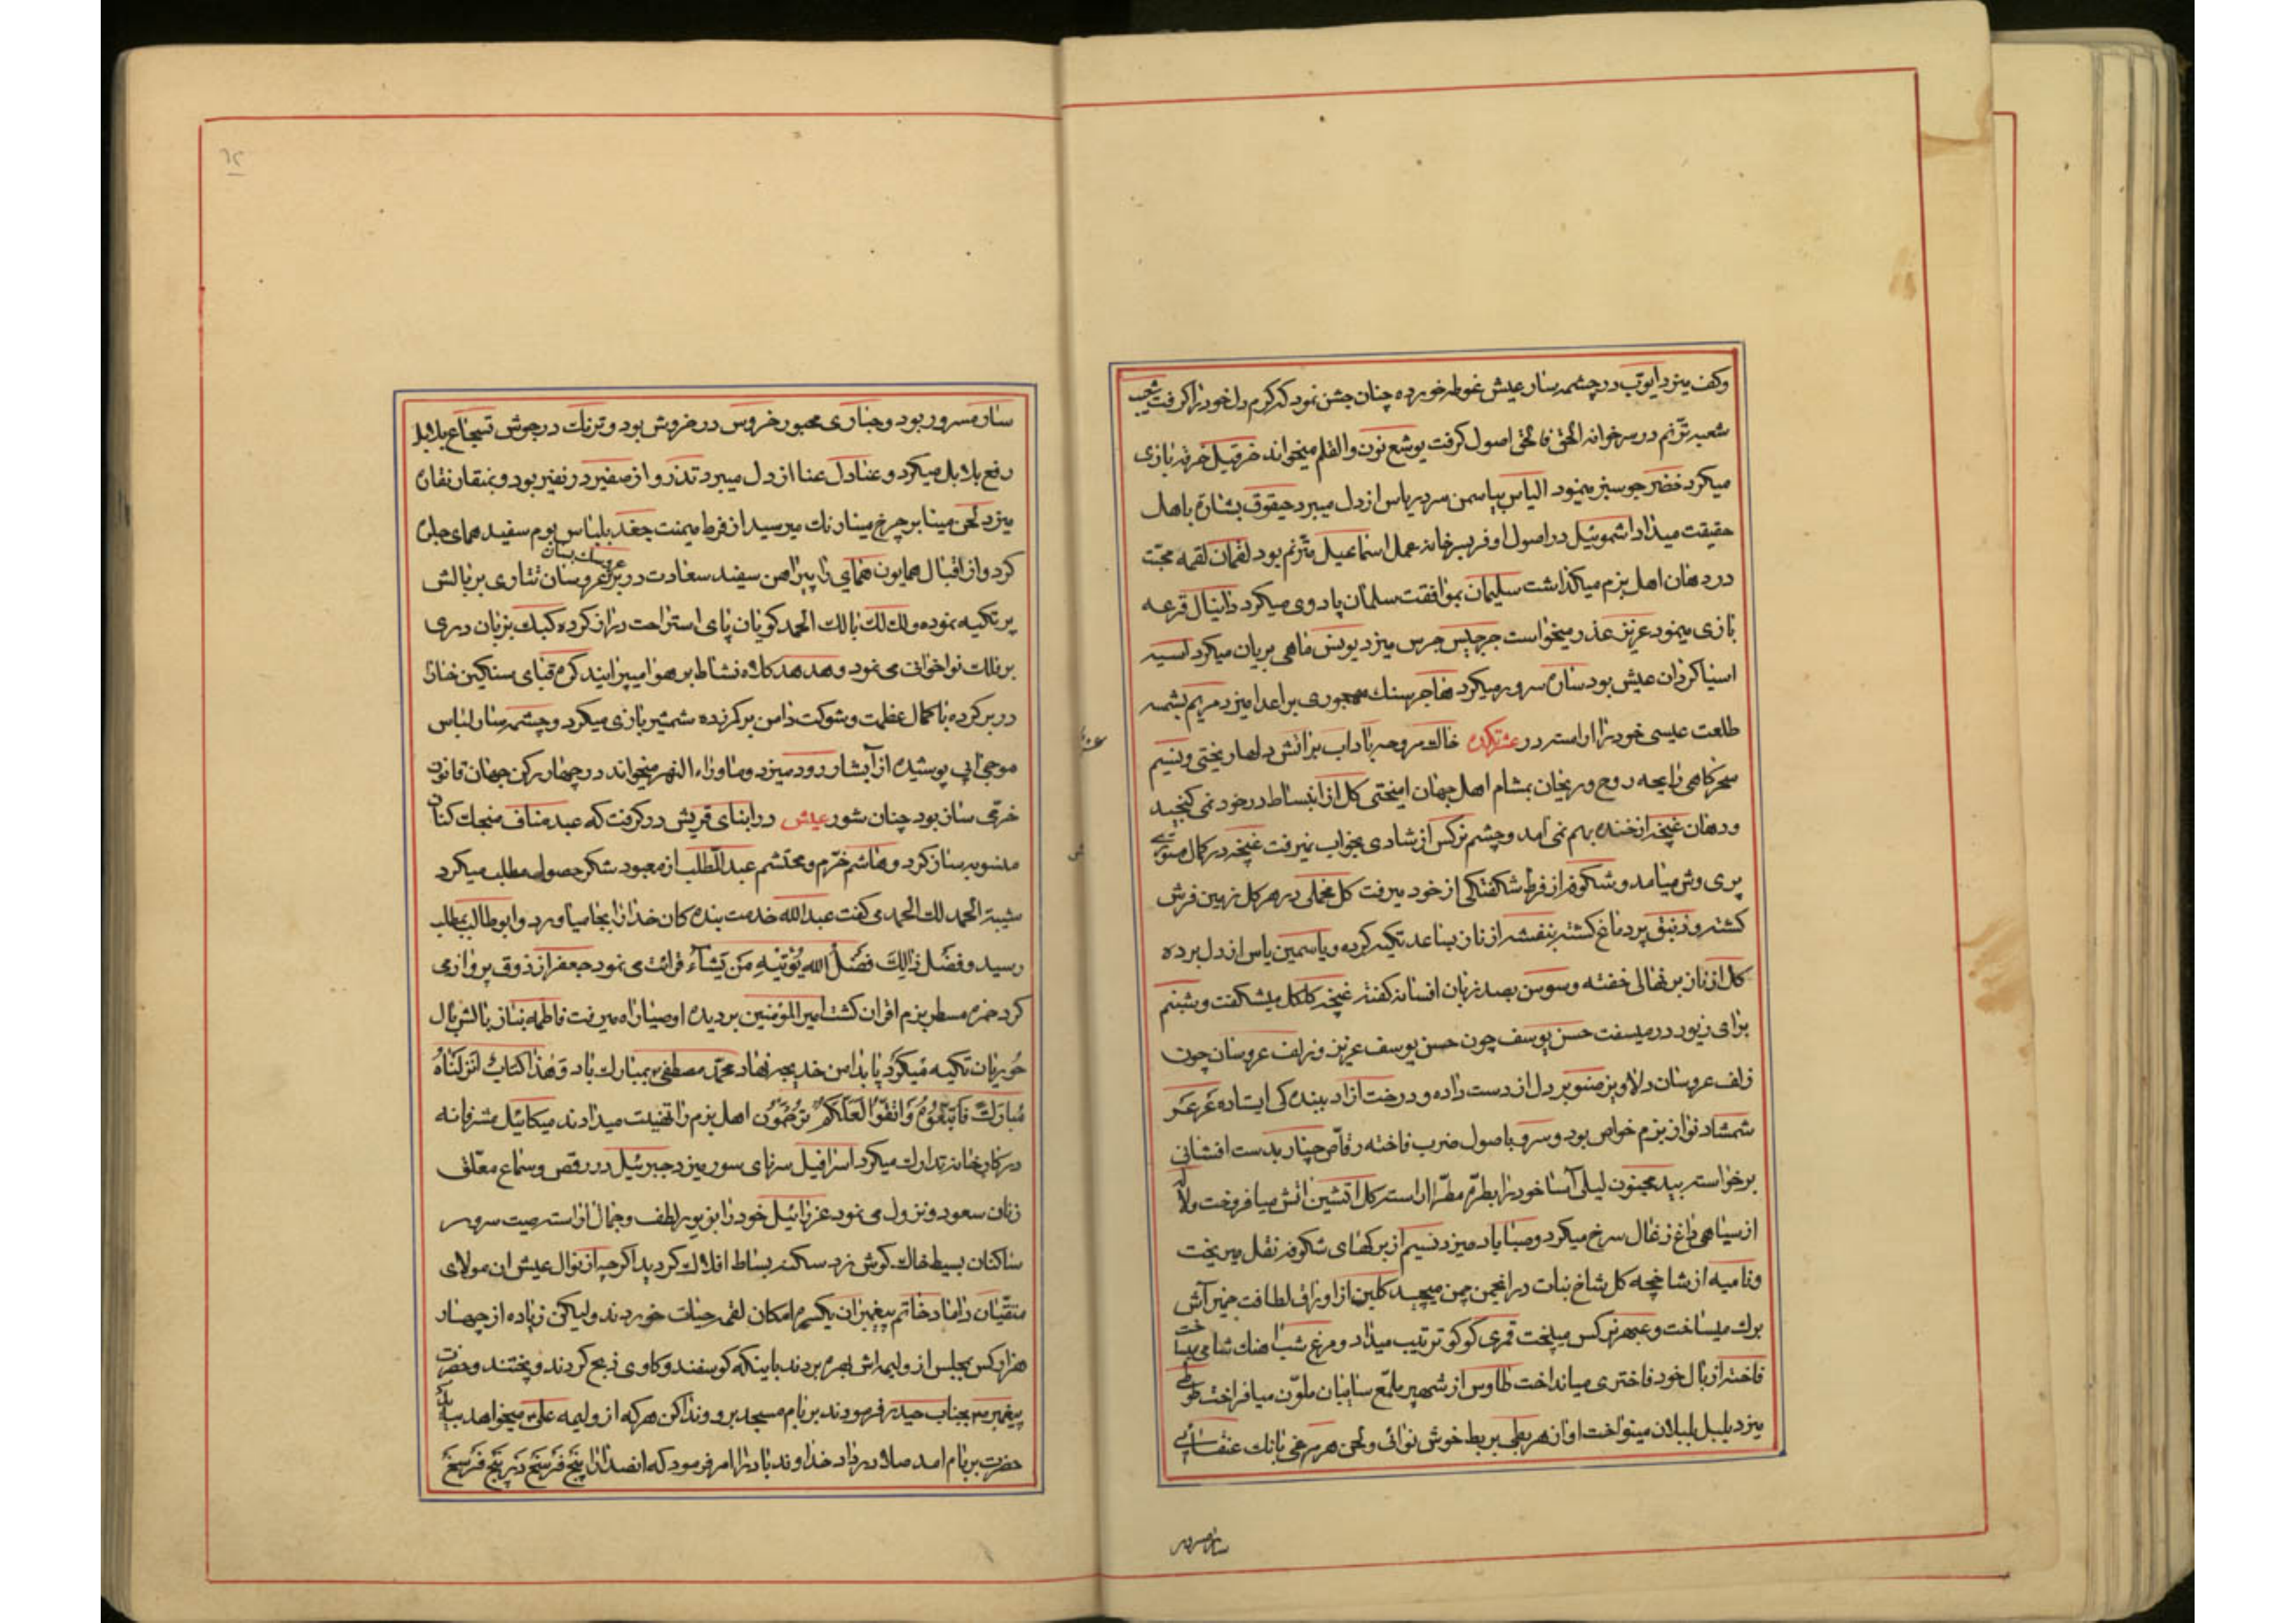 وکف میزد ایوب در چشمه سار عیش غوطه خورده چنان جشن نمود که کرم دل خود را کرفت شعیب
شعبه ترنم در سرخوانه الحق فالحق اصول کرفت یوشع نون والقلم میخواند خرقیل خرقه بازی
میکرد خضر جو سبز مینمود الیاس بیاسمن سرد یاس از دل میبرد حیقوق بشارة باهل
حقیقت میداد اشموئیل در اصول اوفر بسرخانه عمل اسماعیل مترنم بود لقمان لقمه محبت
در دهان اهل بزم میکذاشت سلیمان بموافقت سلمان پادوی میکرد دانیال قرعه
بازی مینمود عزیز عذر میخواست جرجیس جرس میزد یونس ماهی بریان میکرد اسیه
اسیا کردان عیش بود ساره سرور میکرد هاجر سنك مهجوری بر اعدا میزد مریم بشمسه
طلعت عیسی خود را اراسته در عشرتکده خاك مروحه با داب بر اتش دلها ریختی ونسیم
سحرکاهی رایحه روح وریحان بمشام اهل جهان امیختی کل از انبساط در خود نمی کنجید
ودهان غنچه از خنده بهم نمی امد وچشم نرکس از شادی بخواب نمیرفت غنچه در کمال
پری وش میامد وشکوفه از فرط شکفتکی از خود میرفت کل مخملی در هر کل زمین فرش
کشته وزنبق پر دماغ کشته بنفشه از ناز بساعد تکیه کرده ویاسمین یاس از دل برده
کل از ناز بر نهالی خفته وسوسن بصد زبان افسانه کفته غنچه کلکل میشکفت وشبنم
برای زیور در میسفت حسن یوسف چون حسن یوسف عزیز وزلف عروسان چون
زلف عروسان دلاویز صنوبر دل از دست داده ودرخت ازاد ببندکی ایستاده عرعر
شمشاد نواز بزم خواص بود وسرو باصول ضرب فاخته رقاص چنار بدست افشانی
برخواسته بید مجنون لیلی آسا خود را بطره مطرا اراسته کل اتشین اتش میافروخت ولاله
از سیاهی داغ زغال سرخ میکرد وصبا باد میزد نسیم از برکهای شکوفه نقل میریخت
ونامیه از شاخچه کل شاخ نبات در انجمن چمن میچید کلبن از اوراق لطافت خمیر آش
برك میساخت وعبهر نرکس میپخت قمری کوکو ترتیب میداد ومرغ شب اهنك شامی میساخت
فاخته از بال خود فاختری میانداخت طاوس از شهپر ملمع سایبان ملون میافراخت طوطی
میزد بلبل بلبلان مینواخت اواز هر بطی بربط خوش نوائی ولحن هر مرغی بانك عنقائی
ساز مسرور
ساز مسرور بود وحباری محبور خروس در خروش بود وترنك در جوش تسجاع بلابل
رفع بلابل میکرد وعنادل عنا از دل میبرد تذرو از صفیر در نفیر بود وبمنقار نقاره
میزد لحن مینا بر چرخ مینا رنك میرسید از فرط میمنت جغد بلباس بوم سفید همای جلوه
کرد واز اقبال همایون همای را پیراهن سفید سعادت در بر عروسان تتاری بر بالش
پر تکیه نموده ولك لك بالك الحمد کویان پای استراحت دراز کرده کبك بزبان دری
بر فلك نواخوانی می نمود وهدهد کلاه نشاط بر هوا میپرانید کرم قبای سنکین خارا
در بر کرده با کمال عظمت وشوکت دامن بر کمر زده شمشیر بازی میکرد وچشمه سار لباس
موجی ابی پوشیده از آبشار رود میزد وماوراء النهر میخواند در چهار رکن جهان قانون
خرمی ساز بود چنان شور عیش در ابنای قریش در کرفت که عبد مناف منجك کنان
منسوبه ساز کرد وهاشم خرم ومحتشم عبد المطلب از معبود شکر حصول مطلب میکرد
شیبة الحمد لك الحمد می کفت عبدالله خدمت بنده کان خدا را بجا میاورد وابوطالب بمطلب
رسید وفضل ذَالِكَ فَضْلُ اللهِ یُؤْتیهِ مَنْ یَشَآءُ قرائت می نمود جعفر از ذوق پروازی
کرد حمزه مسطر بزم اقران کشت امیر المؤمنین بر دیده اوصیا راه میرفت فاطمه بناز بالش بال
حوریان تکیه میکرد پا بدامن خدیجه نهاد محمد مصطفی بمبارك باد وَهذا کِتابٌ اَنْزَلْناهُ
مُبارَكٌ فَاتَّبِعُوهُ وَاتَّقُوا لَعَلَّکُمْ تُرْحَمُونَ اهل بزم را تهنیت میدادند میکائیل مشرفانه
در کارخانه تدارك میکرد اسرافیل سرنای سور میزد جبرئیل در رقص وسماع معلق
زنان سعود ونزول می نمود عزرائیل خود را بزیور لطف وجمال اراسته صیت سرور
ساکنان بسیط خاك کوش زد سکنه بساط افلاك کردید اکر چه از نوال عیش ان مولای
متقیان داماد خاتم پیغمبران یکسر امکان لقمه حیات خوردند ولیکن زیاده از چهار
هزار کس بمجلس از ولیمه اش بهره بردند با اینکه کوسفند وکاوی ذبح کردند وپختند وحضرت
پیغمبر بجناب حیدر فرمودند بر بام مسجد برو وندا کن هر که از ولیمه علی میخواهد بیاید
حضرت بر بام امد صلا در داد خداوند باد را امر فرمود که انصدا را پنج فرسخ در پنج فرسخ